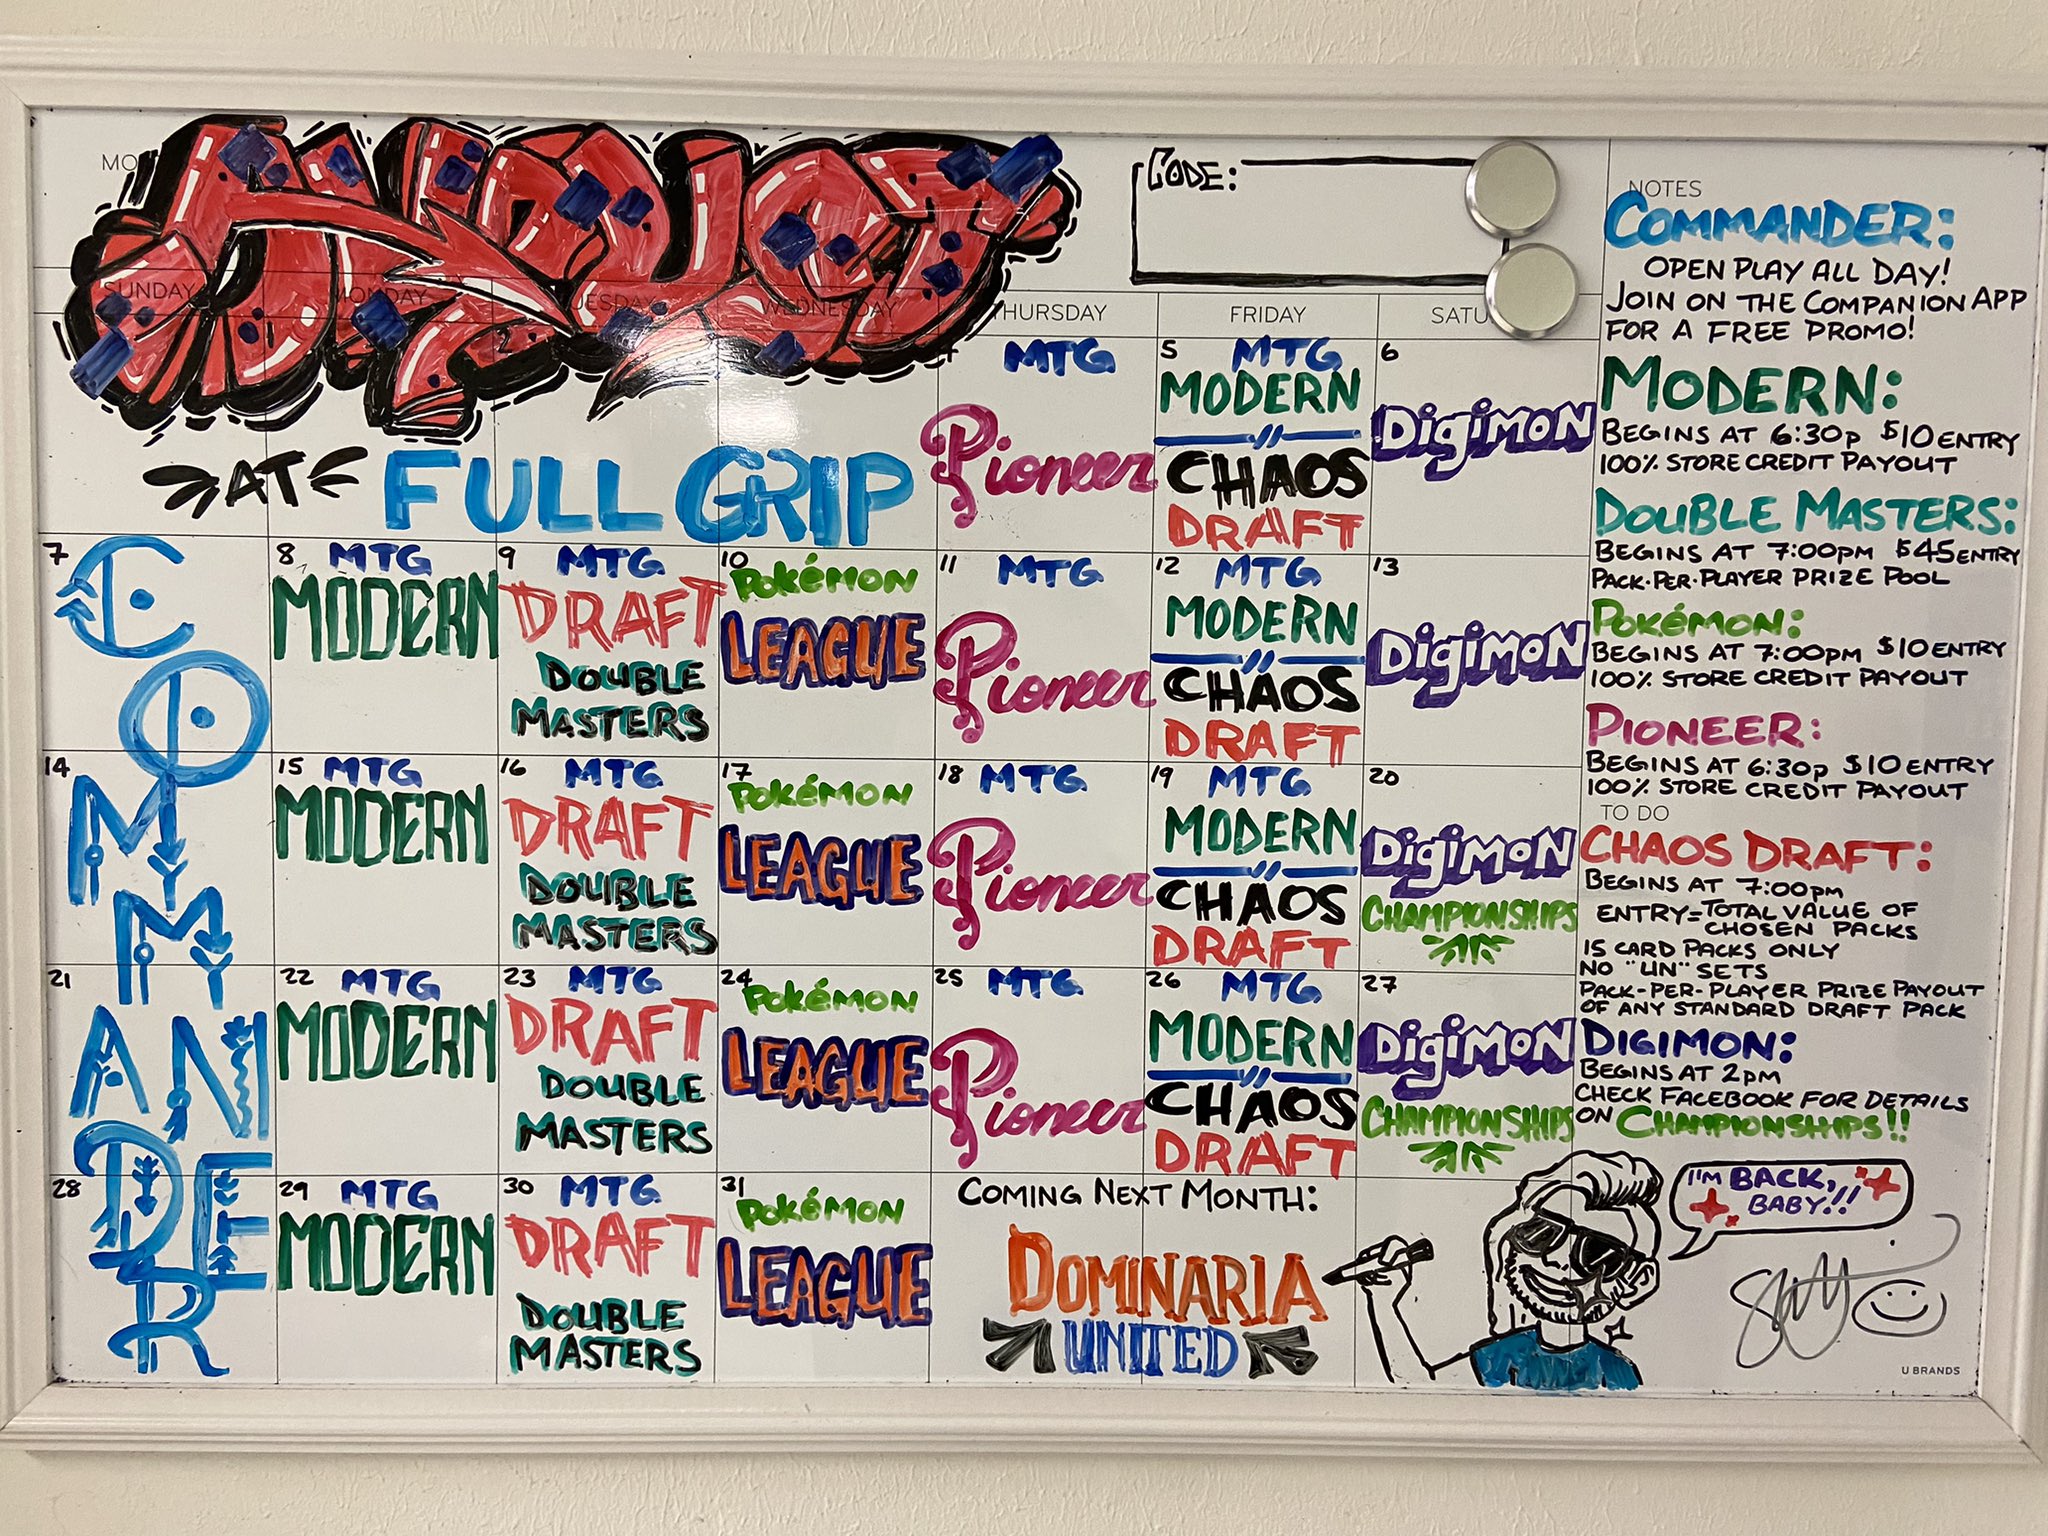 AUGUST
CODE:
SUNDAY
MONDAY
TUESDAY
WEDNESDAY
THURSDAY
FRIDAY
SATU
AT FULL GRIP
2
4 MTG
Pioneer
5 MTG
MODERN
CHAOS
DRAFT
6
DigiMON
COMMANDER
7
8 MTG
MODERN
9 MTG
DRAFT
DOUBLE
MASTERS
10
POKéMON
LEAGUE
11 MTG
Pioneer
12 MTG
MODERN
CHAOS
DRAFT
13
DigiMON
14
15 MTG
MODERN
16 MTG
DRAFT
DOUBLE
MASTERS
17
POKéMON
LEAGUE
18 MTG
Pioneer
19 MTG
MODERN
CHAOS
DRAFT
20
DigiMON
CHAMPIONSHIPS
21
22 MTG
MODERN
23 MTG
DRAFT
DOUBLE
MASTERS
24
POKéMON
LEAGUE
25 MTG
Pioneer
26 MTG
MODERN
CHAOS
DRAFT
27
DigiMON
CHAMPIONSHIPS
28
29 MTG
MODERN
30 MTG
DRAFT
DOUBLE
MASTERS
31
POKéMON
LEAGUE
COMING NEXT MONTH:
DOMINARIA
UNITED
NOTES
COMMANDER:
OPEN PLAY ALL DAY!
JOIN ON THE COMPANION APP
FOR A FREE PROMO!
MODERN:
BEGINS AT 6:30p $10 ENTRY
100% STORE CREDIT PAYOUT
DOUBLE MASTERS:
BEGINS AT 7:00pm $45 ENTRY
PACK-PER-PLAYER PRIZE POOL
POKéMON:
BEGINS AT 7:00pm $10 ENTRY
100% STORE CREDIT PAYOUT
PIONEER:
BEGINS AT 6:30p $10 ENTRY
100% STORE CREDIT PAYOUT
TO DO
CHAOS DRAFT:
BEGINS AT 7:00pm
ENTRY=TOTAL VALUE OF
CHOSEN PACKS
15 CARD PACKS ONLY
NO "UN" SETS
PACK-PER-PLAYER PRIZE PAYOUT
OF ANY STANDARD DRAFT PACK
DIGIMON:
BEGINS AT 2pm
CHECK FACEBOOK FOR DETAILS
ON CHAMPIONSHIPS!!
I'M BACK,
BABY!!
U BRANDS